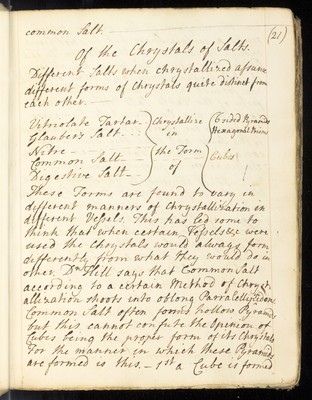 common Salt. (21)
Of the Chrystals of Salts.
Different Salts when chrystallized assume
different forms of Chrystals quite distinct from
each other.
Vitriolate Tartar
Glaubers Salt
Nitre
Common Salt
Digestive Salt
Chrystallize
in
the Form
of
Hexagonal
Cubes
These Forms are found to vary in
different manners of Chrystallization in
different Vessels. This has led some to
think that when certain Vessels &c were
used the Chrystals would always form
differently from what they would do in
other. Dr. Hill says that Common Salt
according to a certain Method of Chryst-
allization shoots into oblong
Common Salt often forms hollow Pyramids
but this cannot confute the Opinion of
Cubes being the proper form of its Chrystals
For the manner in which these Pyramids
are formed is this. 1st a Cube is formed